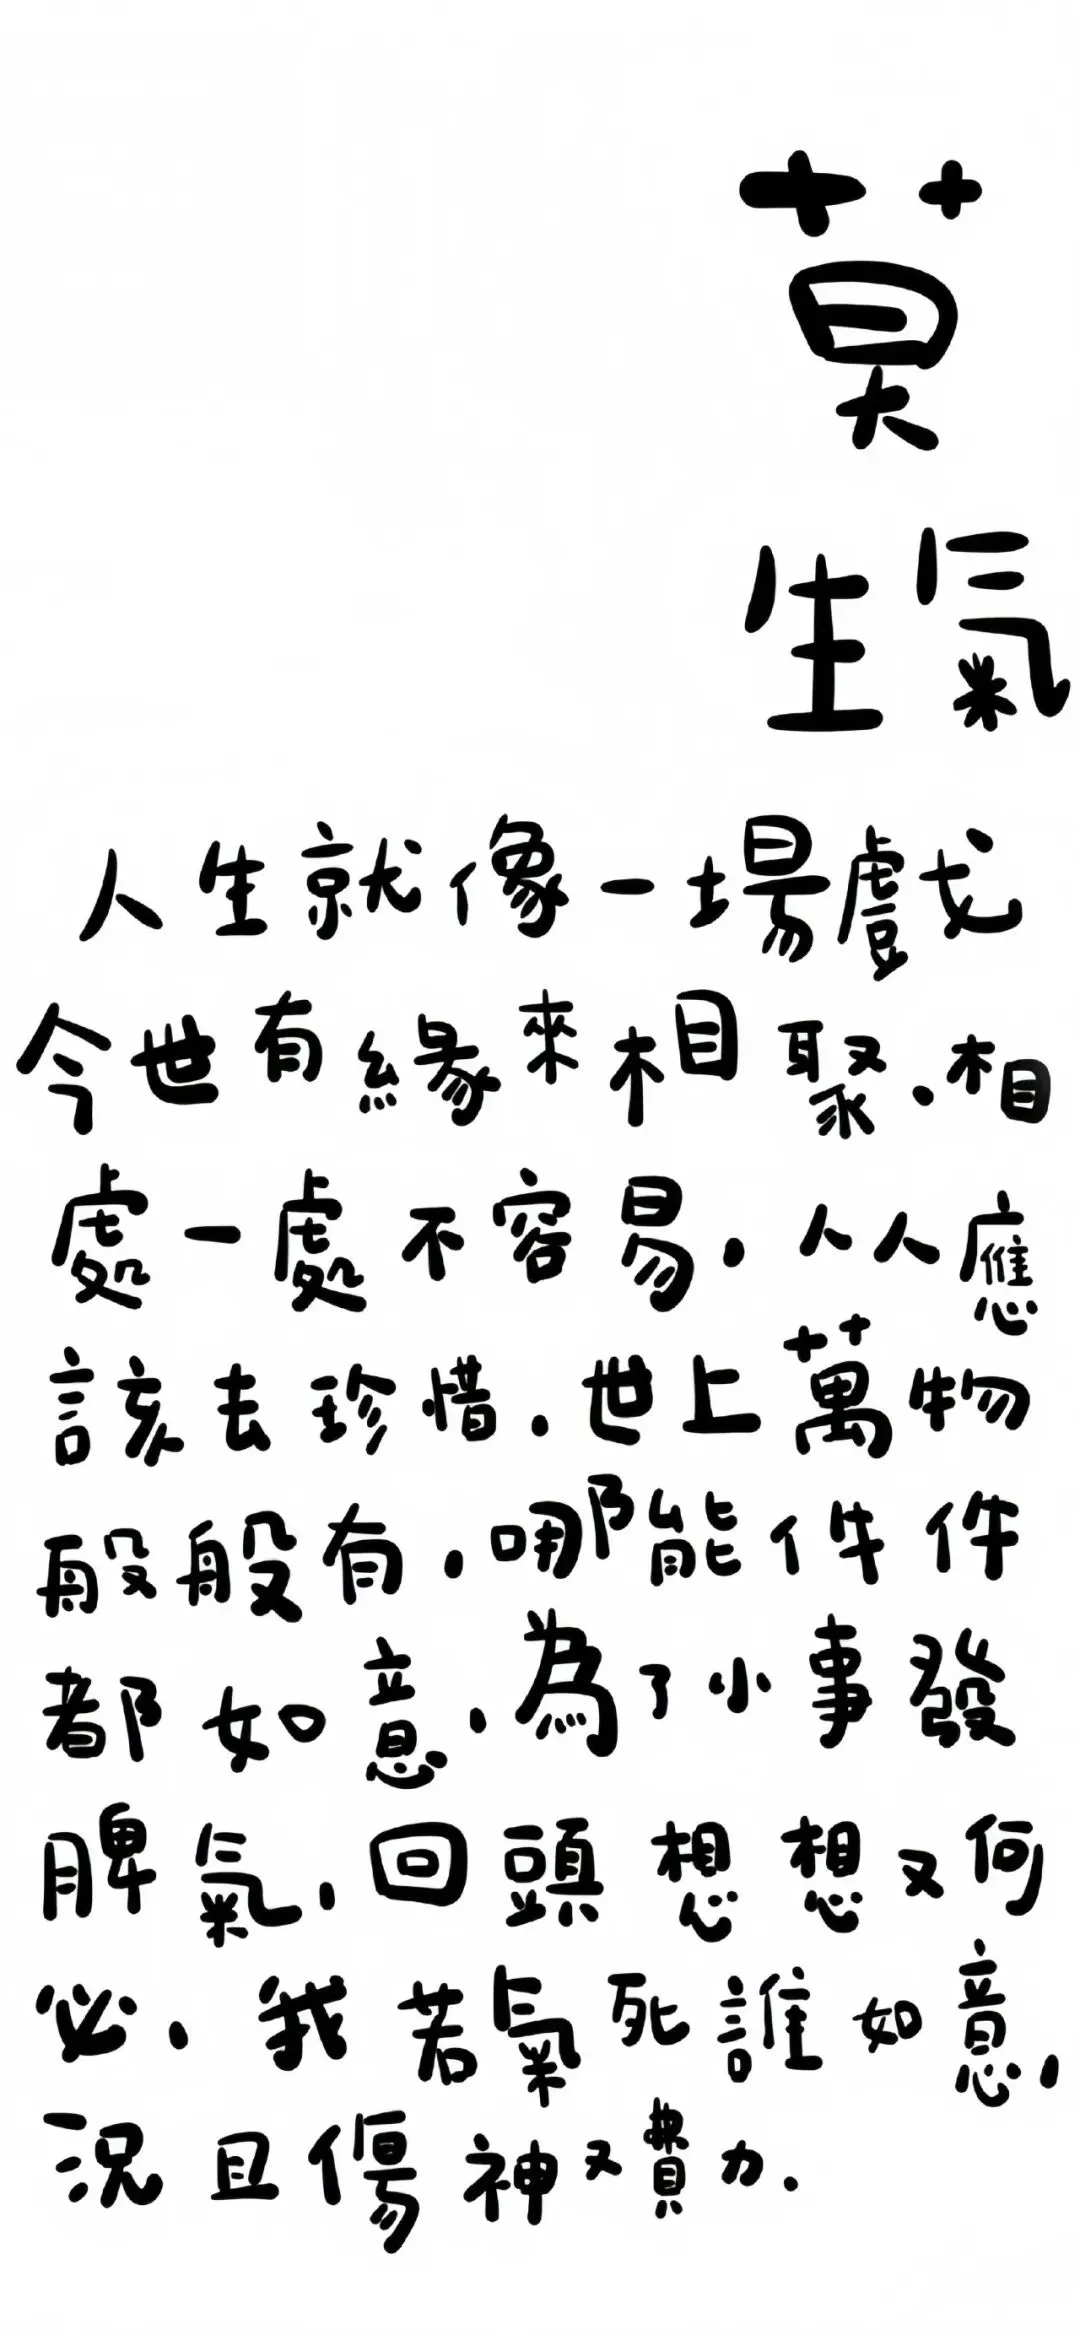 莫
生氣
人生就像一場戲
今世有緣來相聚.相
處一處不容易,人人應
該去珍惜.世上萬物
般般有,哪能件件
都如意,為了小事發
脾氣,回頭想想又何
必,我若氣死誰如意,
況且傷神又費力.